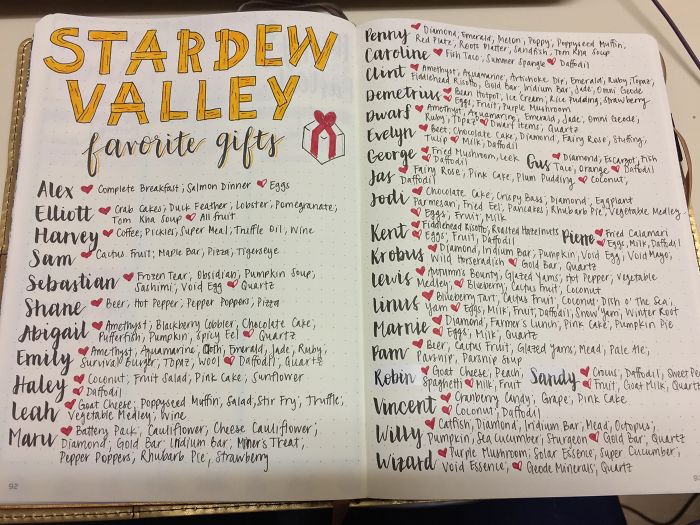 STARDEW
VALLEY
favorite gifts
Alex ♥ Complete Breakfast; Salmon Dinner ♡ Eggs
Elliott ♥ Crab Cakes; Duck Feather; Lobster; Pomegranate;
Tom Kha Soup ♡ All fruit
Harvey ♥ Coffee; Pickles; Super Meal; Truffle Oil; Wine
Sam ♥ Cactus Fruit; Maple Bar; Pizza; Tigerseye
Sebastian ♥ Frozen Tear, Obsidian; Pumpkin Soup;
Sashimi; Void Egg ♡ Quartz
Shane ♥ Beer; Hot Pepper; Pepper Poppers; Pizza
Abigail ♥ Amethyst; Blackberry Cobbler; Chocolate Cake;
Pufferfish; Pumpkin; Spicy Eel ♡ Quartz
Emily ♥ Amethyst; Aquamarine; Cloth; Emerald; Jade; Ruby;
Survival Burger; Topaz; Wool ♡ Daffodil; Quartz
Haley ♥ Coconut; Fruit Salad; Pink Cake; Sunflower
♡ Daffodil
Leah ♥ Goat Cheese; Poppyseed Muffin; Salad; Stir Fry; Truffle;
Vegetable Medley; Wine
Maru ♥ Battery Pack; Cauliflower; Cheese Cauliflower;
Diamond; Gold Bar; Iridium Bar; Miner's Treat;
Pepper Poppers; Rhubarb Pie; Strawberry
92
Penny ♥ Diamond; Emerald; Melon; Poppy; Poppyseed Muffin;
Red Plate; Roots Platter; Sandfish; Tom Kha Soup
Caroline ♥ Fish Taco; Summer Spangle ♡ Daffodil
Clint ♥ Amethyst; Aquamarine; Artichoke Dip; Emerald; Ruby; Topaz;
Fiddlehead Risotto; Gold Bar; Iridium Bar; Jade; Omni Geode
Demetrius ♥ Bean Hotpot; Ice Cream; Rice Pudding; Strawberry
♡ Eggs; Fruit; Purple Mushroom
Dwarf ♥ Amethyst; Aquamarine; Emerald; Jade; Omni Geode;
Ruby; Topaz ♡ Dwarf Items; Quartz
Evelyn ♥ Beet; Chocolate Cake; Diamond; Fairy Rose; Stuffing;
Tulip ♡ Milk; Daffodil
George ♥ Fried Mushroom; Leek ♡ Daffodil
Gus ♥ Diamond; Escargot; Fish Taco; Orange ♡ Daffodil
Jas ♥ Fairy Rose; Pink Cake; Plum Pudding ♡ Coconut;
Daffodil
Jodi ♥ Chocolate Cake; Crispy Bass; Diamond; Eggplant
Parmesan; Fried Eel; Pancakes; Rhubarb Pie; Vegetable Medley
♡ Eggs; Fruit; Milk
Kent ♥ Fiddlehead Risotto; Roasted Hazelnuts ♡ Eggs; Fruit; Daffodil
Pierre ♥ Fried Calamari ♡ Eggs, Milk, Daffodil
Krobus ♥ Diamond; Iridium Bar; Pumpkin; Void Egg; Void Mayo;
Wild Horseradish ♡ Gold Bar; Quartz
Lewis ♥ Autumn's Bounty; Glazed Yams; Hot Pepper; Vegetable
Medley; ♡ Blueberry; Cactus Fruit; Coconut
Linus ♥ Blueberry Tart; Cactus Fruit; Coconut; Dish o' The Sea;
Yam ♡ Eggs, Milk, Fruit; Daffodil; Snow Yam; Winter Root
Marnie ♥ Diamond; Farmer's Lunch; Pink Cake; Pumpkin Pie
♡ Eggs; Milk; Quartz
Pam ♥ Beer; Cactus Fruit; Glazed Yams; Mead; Pale Ale;
Parsnip; Parsnip Soup
Robin ♥ Goat Cheese; Peach; Spaghetti ♡ Milk; Fruit
Sandy ♥ Crocus; Daffodil; Sweet Pea ♡ Fruit; Goat Milk; Quartz
Vincent ♥ Cranberry Candy; Grape; Pink Cake
♡ Coconut; Daffodil
Willy ♥ Catfish; Diamond; Iridium Bar; Mead; Octopus;
Pumpkin; Sea Cucumber; Sturgeon ♡ Gold Bar; Quartz
Wizard ♥ Purple Mushroom; Solar Essence; Super Cucumber;
Void Essence; ♡ Geode Minerals; Quartz